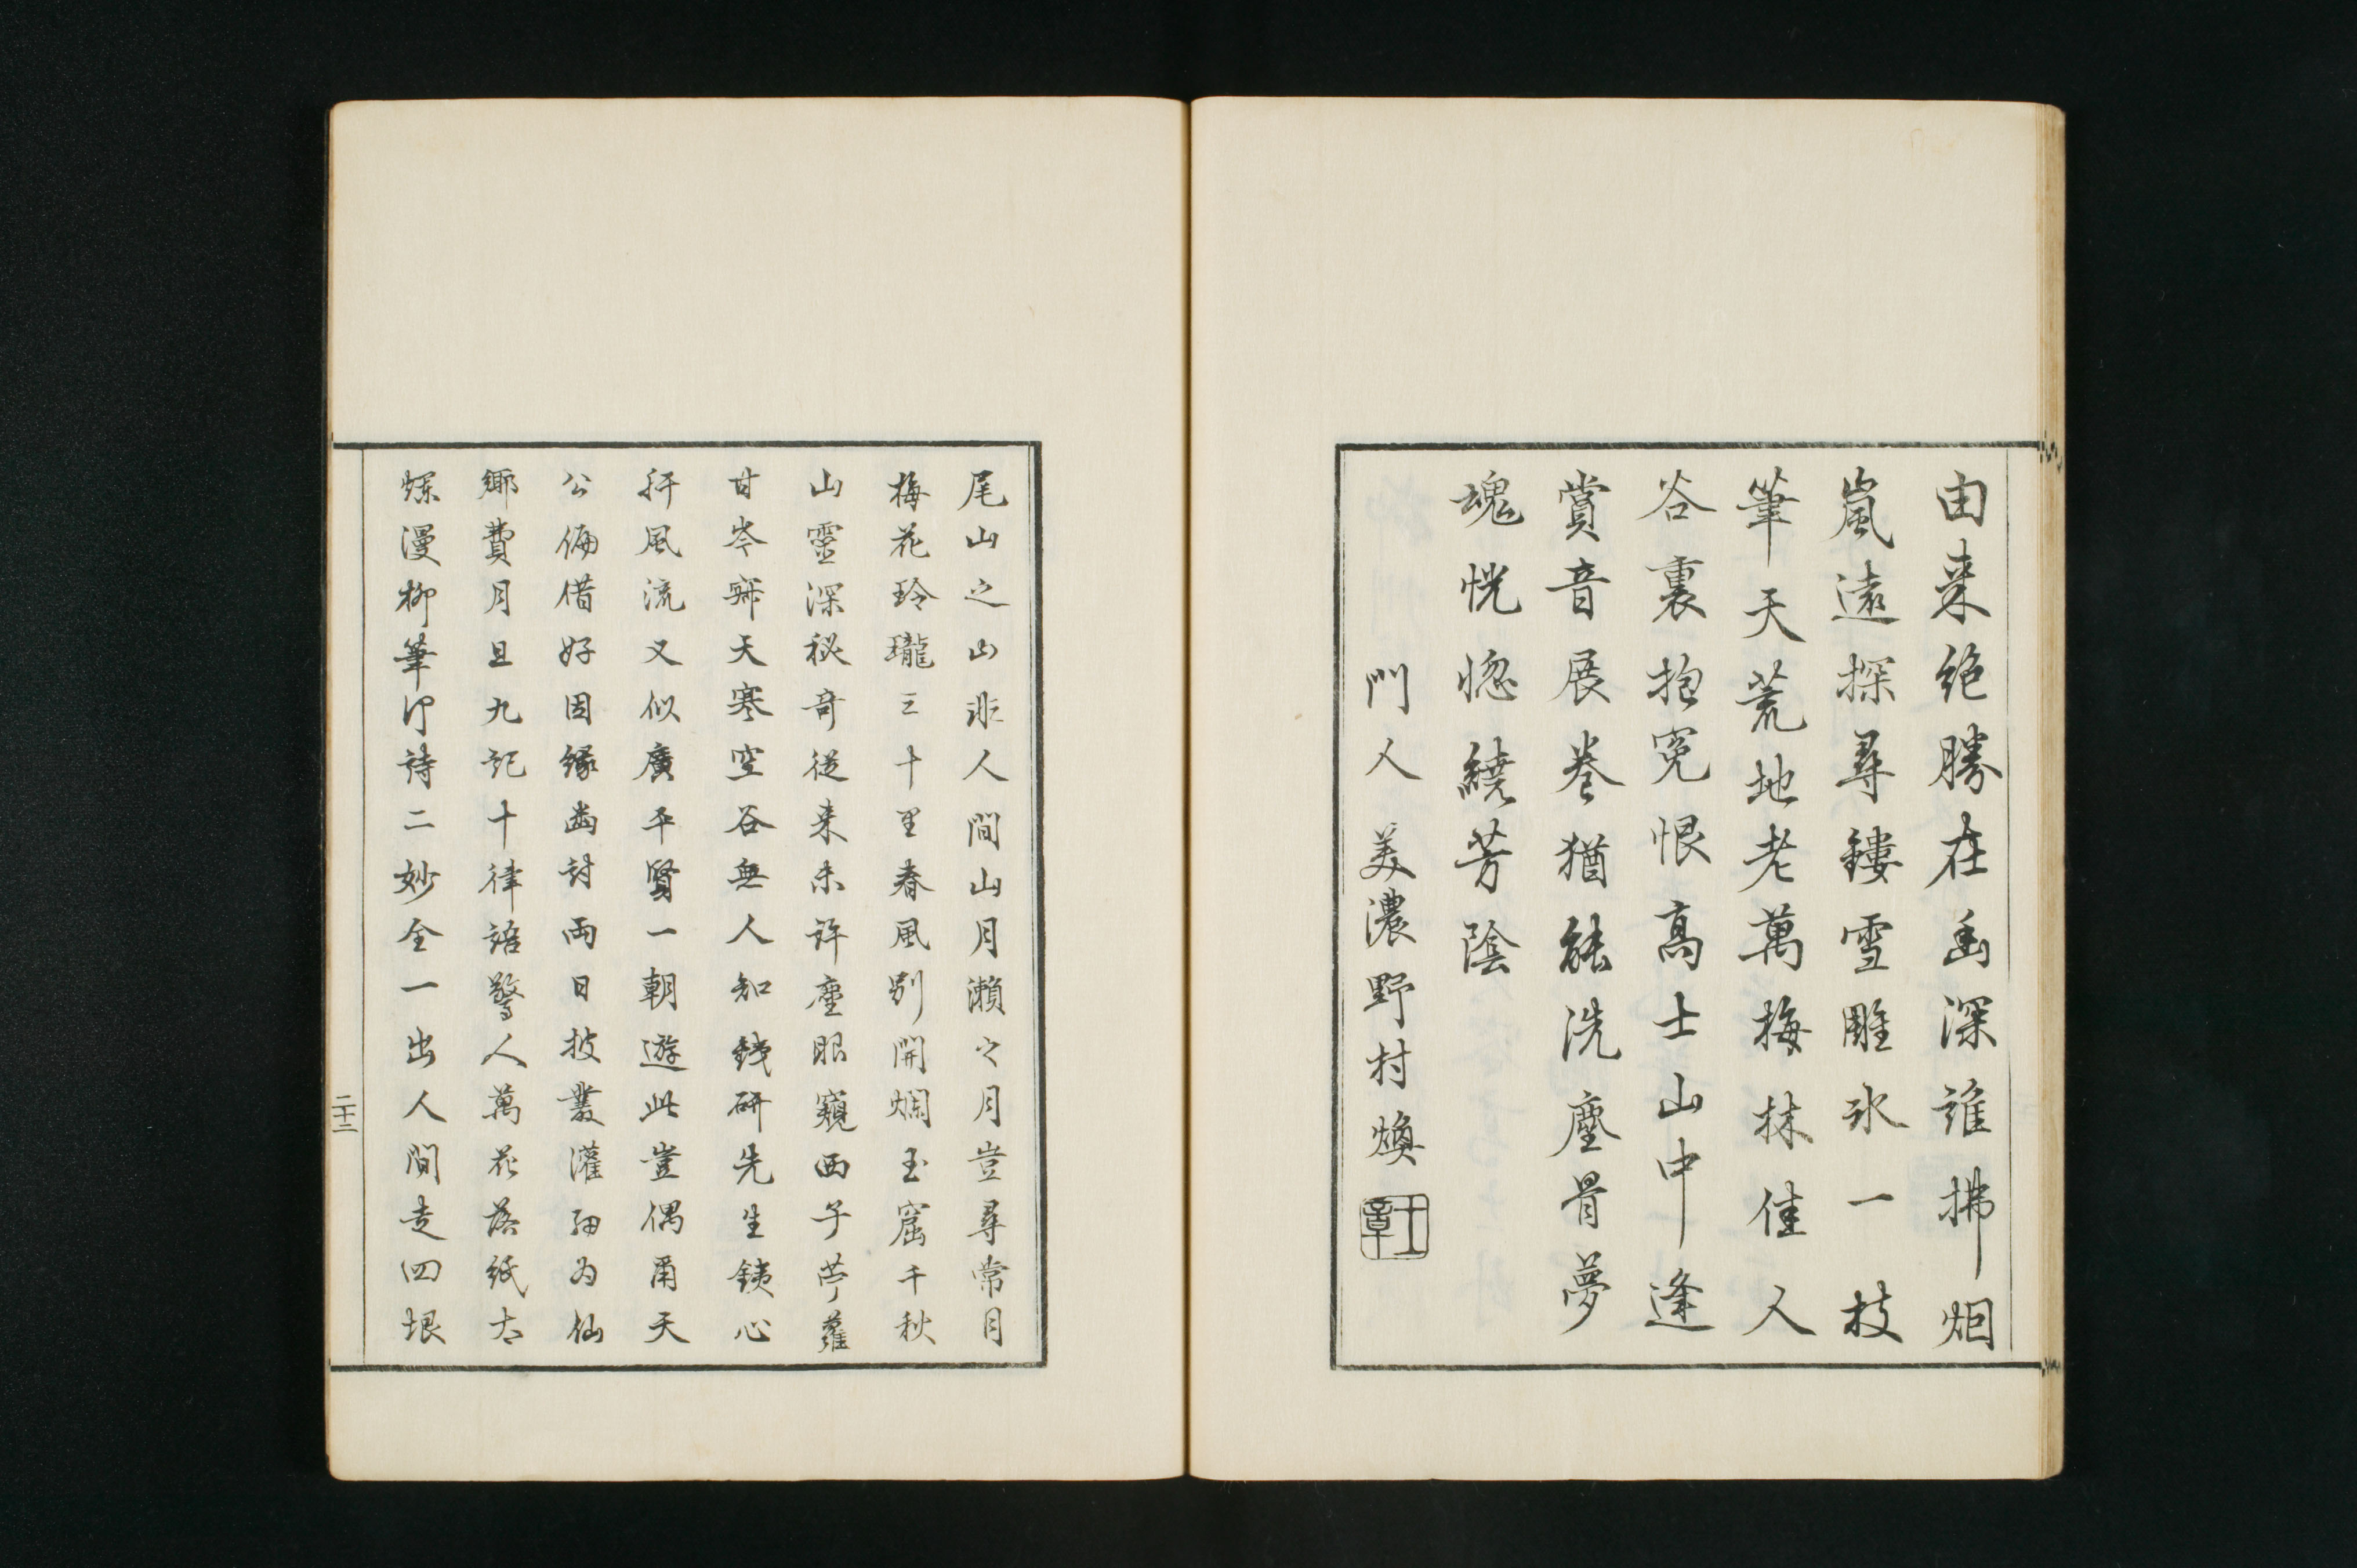 由来絶勝在幽深誰拂烟
嵐遠探尋鏤雪雕氷一枝
筆天荒地老萬梅林佳人
谷裏抱冤恨高士山中逢
賞音展巻猶能洗塵骨夢
魂恍惚繞芳陰
門人 美濃野村煥
士章
尾山之山非人間山月瀬之月豈尋常月
梅花玲瓏三十里春風別開爛玉窟千秋
山靈深秘奇従来未許塵眼窺西子苧蘿
甘岑寂天寒空谷無人知銕研先生鐵心
肝風流又似廣平賢一朝遊此豈偶爾天
公偏借好因縁幽討両日披叢灌細為仙
郷費月旦九記十律語驚人萬花落紙太
爛漫柳筆印詩二妙全一出人間走四垠
二十二